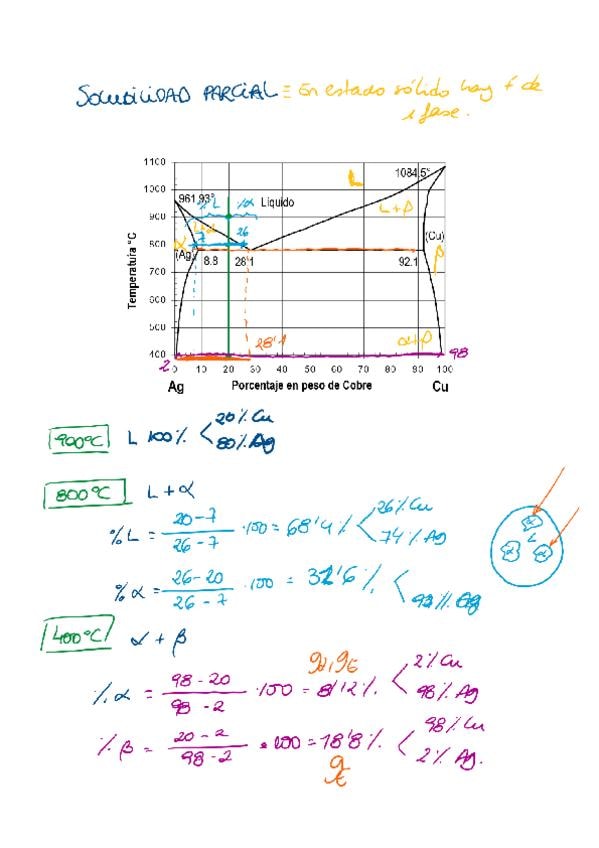 SOLUBILIDAD PARCIAL ≡ En estado sólido hay + de
1 fase.
1100
1084.5°
L
1000
961.93°
%L %α Líquido
L+β
900
L+α
α 7 26
(Cu)
800
(Ag) 8.8 28.1 92.1
β
700
Temperatura °C
600
500
28'1
α+β
400
2
98
0 10 20 30 40 50 60 70 80 90 100
Ag Porcentaje en peso de Cobre Cu
20% Cu
900ºC L 100%
80% Ag
800ºC L + α
%L = 20-7 / 26-7 · 100 = 68'4%
26% Cu
74% Ag
α
L
α α
%α = 26-20 / 26-7 · 100 = 31'6%
93% Ag
400ºC α + β
%α = 98-20 / 98-2 · 100 = 81'2%
2% Cu
98% Ag
%β = 20-2 / 98-2 · 100 = 18'8%
98% Cu
2% Ag.